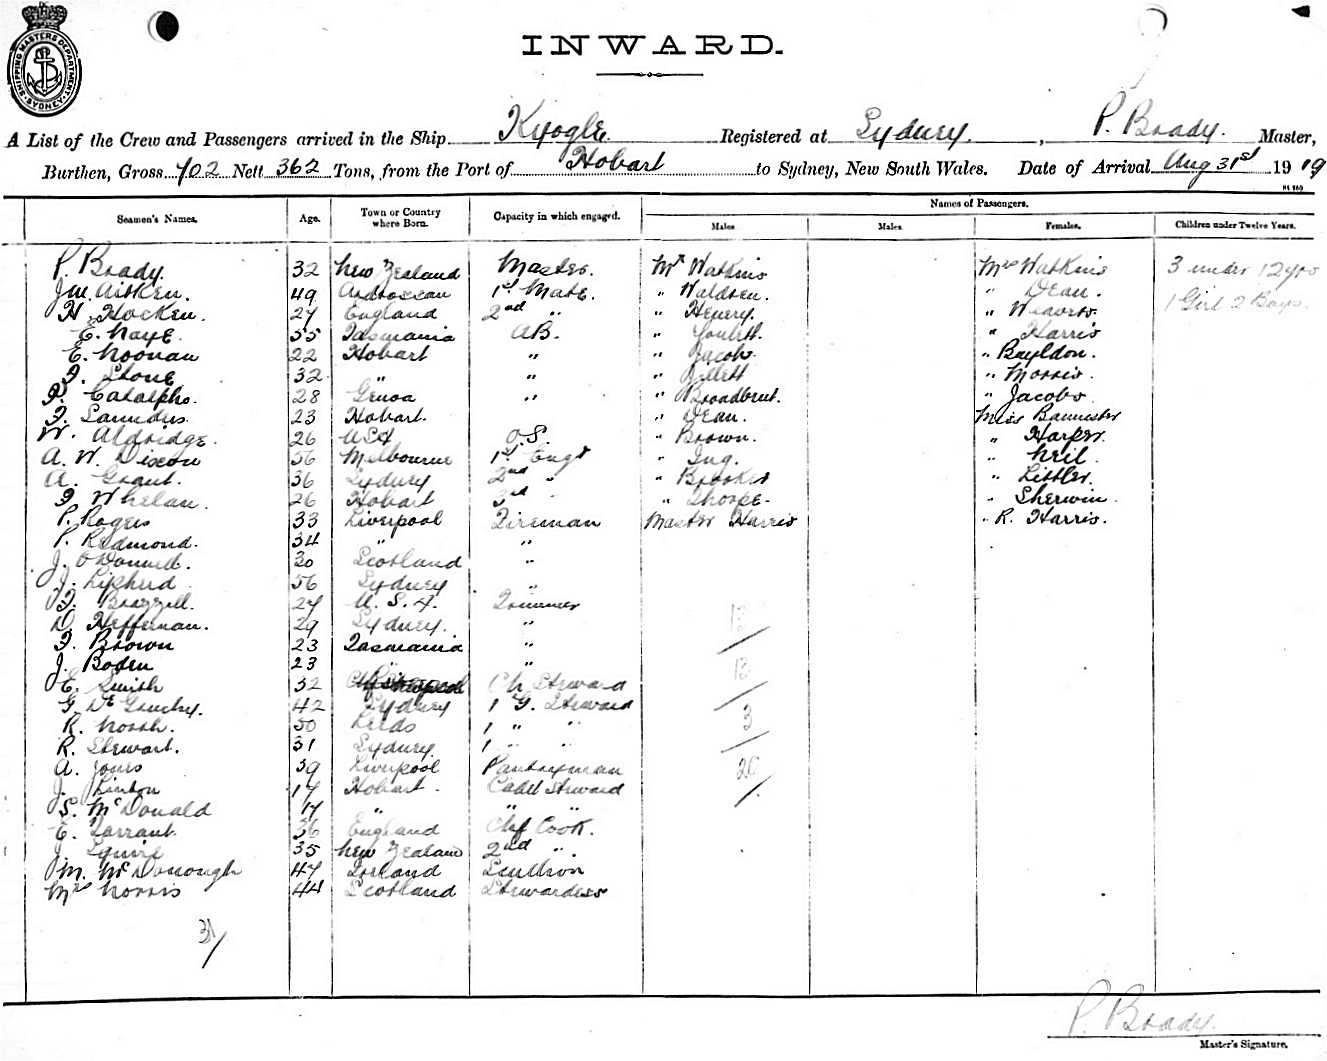 SHIPPING MASTERS DEPARTMENT · SYDNEY ·
INWARD.
A List of the Crew and Passengers arrived in the Ship Kyogle Registered at Sydney, P. Brady. Master,
Burthen, Gross 702 Nett 362 Tons, from the Port of Hobart to Sydney, New South Wales. Date of Arrival Aug 31st 1919
Seamen's Names. Age. Town or Country where Born. Capacity in which engaged. Names of Passengers.
Males Males Females. Children under Twelve Years.
P. Brady. 32 New Zealand Master. Mr Watkins Mrs Watkins 3 under 12 yrs
J.W. Aitken. 49 Ardrossan 1st Mate. " " Dean. 1 Girl 2 Boys.
H. Hocken. 27 England 2nd " " Henery. "
E. Kaye. 55 Tasmania AB. " " Harris
E. Noonan 22 Hobart " " Jacob. " Bayldon.
F. Stone 32 " " " " Morris.
28 Genoa " " Broadbent. " Jacobs.
23 Hobart. " Dean. Miss Bannister
W. Aldridge. 26 USA O.S. " Brown. " Harper.
A. W. Dixon 56 Melbourne 1st Engr " " Neil.
A. Grant. 36 Sydney 2nd " " " Littler.
F Whelan. 26 Hobart 3rd " " Thorpe. " Sherwin
P. Rogers 33 Liverpool Fireman Master Harris " R. Harris.
P. Redmond. 34 " "
J. O'Donnell. 30 Scotland "
J. 56 Sydney "
24 U.S.A. Trimmer
D. Heffernan. 29 Sydney. "
F. Brown 23 Tasmania "
J. Boden 23 " "
E. Smith 32 Ch Steward
G. De Gruchy. 42 Sydney 1 G. Steward
R. North. 50 Leeds 1 " "
R. Stewart. 31 Sydney. 1 " "
A. Jones 39 Liverpool Pantryman
J. Linton 17 Hobart. Cadet Steward
S. McDonald 17 " " "
E. Tarrant. 36 England Chf Cook.
J. Squire 35 New Zealand 2nd ".
M. McDonough 47 Ireland Scullion
Mrs Norris 44 Scotland Stewardess
31/
13/
13/
3/
P. Brady.
Master's Signature.